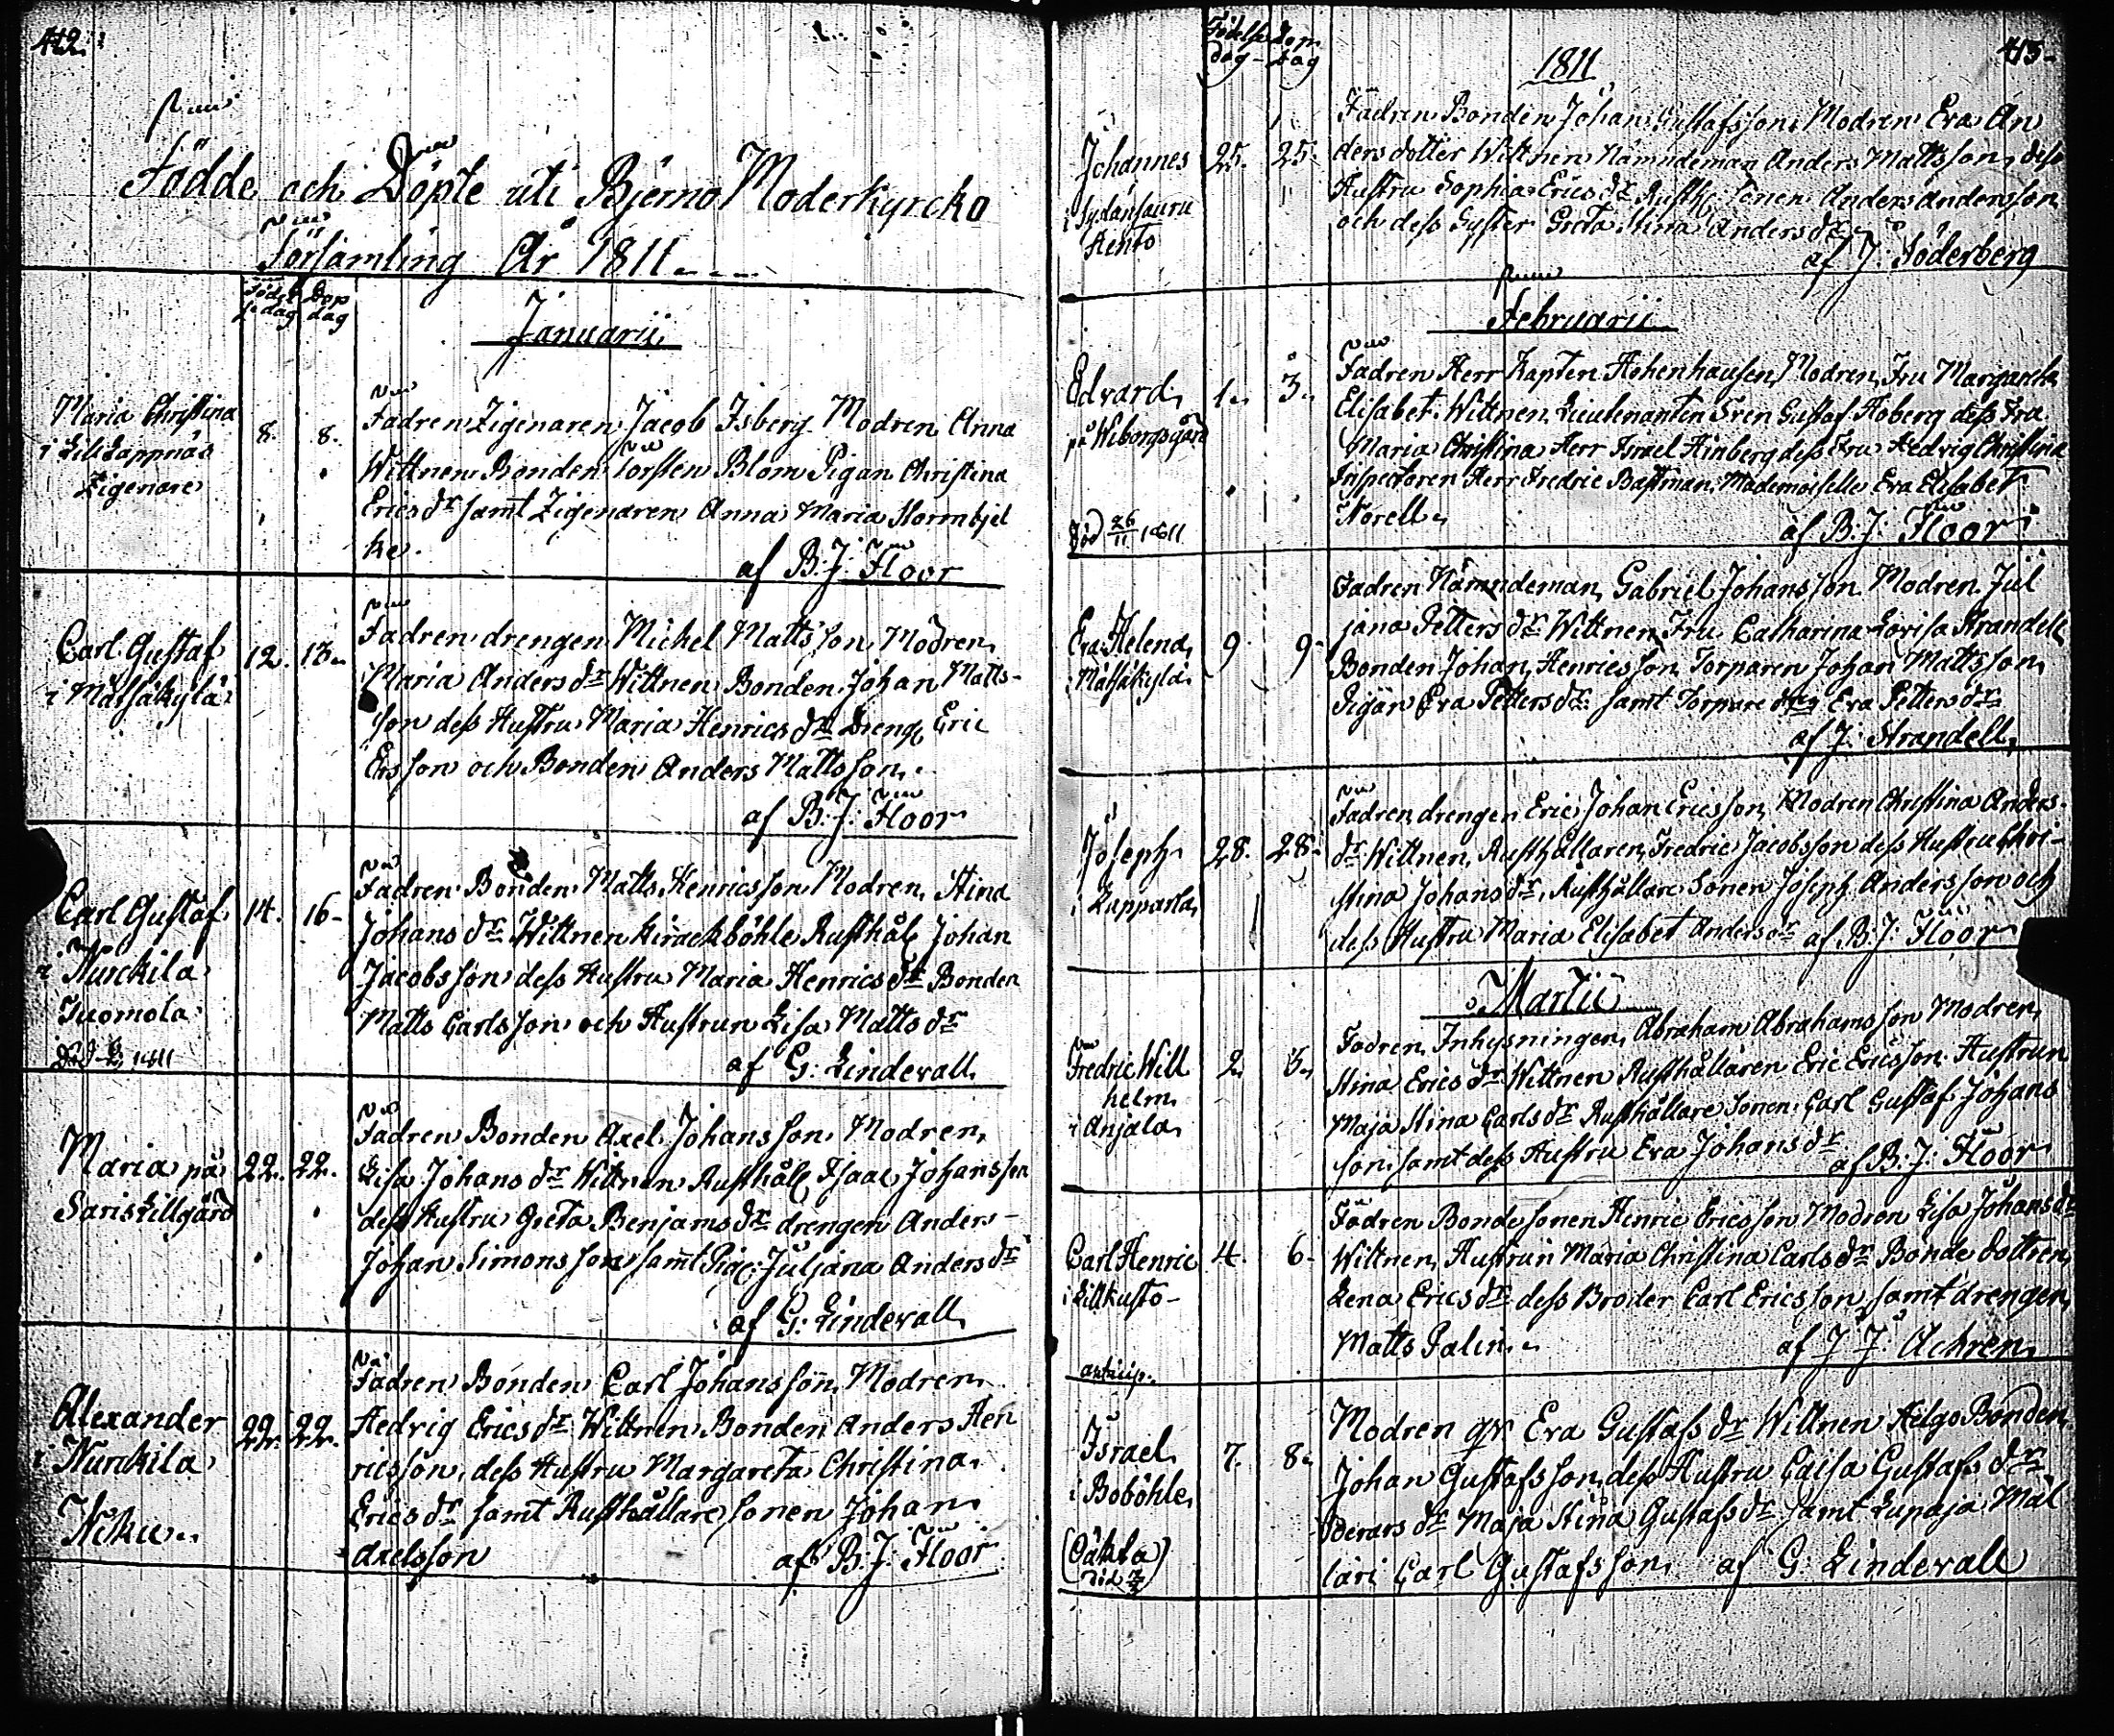 412.
Födde och Döpte uti Bjerno Moderkyrcko
Församling År 1811
Födelsedag Dop dag
Januarii
Maria Christina
i Lill Lappnäs
Zigenare
8. 8.
Fadren Zigenaren Jacob Isberg Modren Anna
Wittnen Bonden Torsten Blom Pigan Christina
Erics dr samt Zigenaren Anna Maria
ke.
af B: J: Floor
Carl Gustaf
i Mätsäkylä
12. 13.
Fadren drengen Michel Mattsson Modren
Maria Anders dr Wittnen Bonden Johan Matts-
son dess Hustru Maria Henrics dr Dreng Eric
Ersson och Bonden Anders Mattsson.
af B: J: Floor
Carl Gustaf
i Nurckila
Tuomola
död 1811
14. 16
Fadren Bonden Matts Henricsson Modren Stina
Johans dr Wittnen Kirackböhle Rusthål Johan
Jacobsson dess Hustru Maria Henrics dr Bonden
Matts Carlsson och Hustrun Lisa Matts dr
af G: Lindevall
Maria på
Saris Lillgård
22. 22.
Fadren Bonden Axel Johansson Modren
Lisa Johans dr Wittnen Rusthål Isaac Johansson
dess Hustru Greta Benjams dr drengen Anders
Johan Simonsson samt Pig: Juljana Anders dr
af G: Lindevall
Alexander
i Nurckila
22. 22.
Fadren Bonden Carl Johansson Modren
Hedvig Erics dr Wittnen Bonden Anders Hen
ricsson dess Hustru Margareta Christina
Erics dr samt Rusthållare sonen Johan
Axelsson af B: J: Floor
413
Födelse dag Dop dag
1811
Johannes
i Sydänsauru
Kento
25. 25.
Fadren Bonden Johan Gustafsson Modren Eva An
ders dotter Wittnen Nämndeman Anders Mattsson dess
Hustru Sophia Erics dr Rusth: sonen Anders Andersson
och dess Syster Greta Stina Anders dr
af J: Söderberg
Februarii
Edvard
på Wiborgsgård
död 26/11 1811
1. 3.
Fadren Herr Kapten Hohenhausen Modren Fru Margareta
Elisabet. Wittnen Lieutenanten Gustaf Hoberg dess Fru
Maria Christina Herr Israel Himberg dess Fru Hedvig Christina
Inspectoren Herr Fredric Bastman Mademoiselle Eva Elisabet
Norell.
af B: J: Floor
Eva Helena
i Mätsäkylä
9. 9
Fadren Nämndeman Gabriel Johansson Modren Jul
jana Petters dr Wittnen Fru Catharina Lovisa Strandell
Bonden Johan Henricsson Torparen Johan Mattsson
Pigan Eva Petters dr samt Torpare Eva Petters dr
af J: Strandell
Joseph
i Lupparla
28. 28.
Fadren drengen Eric Johan Ericsson Modren Christina Anders
dr Wittnen, Rusthållaren Fredric Jacobsson dess Hustru Chri-
stina Johans dr, Rusthållare Sonen Joseph Andersson och
dess Hustru Maria Elisabet Anders dr af B: J: Floor
Martii
Fredric Will
helm
i Anjala
2. 3.
Fadren Inhysningen Abraham Abrahamsson Modren
Stina Erics dr Wittnen Rusthållaren Eric Ericsson Hustrun
Maja Stina Carls dr Rusthållare Sonen Carl Gustaf Johans
son, samt dess Hustru Eva Johans dr af B: J: Floor
Carl Henric
i Lillkusto
4. 6.
Fadren Bondesonen Henric Ericsson Modren Lisa Johans dr
Wittnen, Hustrun Maria Christina Carls dr Bonde dottren
Lena Erics dr dess Broder Carl Ericsson samt drengen
Matts Palin.
af J: J: Achren
Israel
i Boböhle
död
7. 8.
Modren qv: Eva Gustafs dr Wittnen Helgo Bonden
Johan Gustafsson dess Hustru Caisa Gustafs dr
dr Maja Stina Gustafs dr samt Lupaja Mäl
läri Carl Gustafsson af G: Lindevall